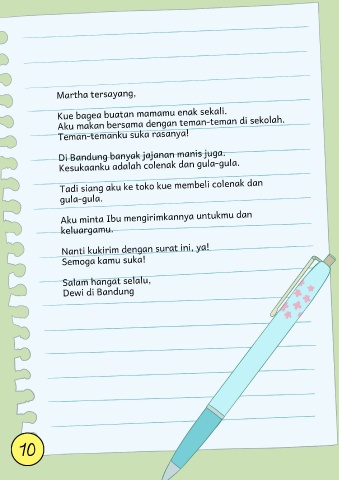 Martha tersayang,
Kue bagea buatan mamamu enak sekali.
Aku makan bersama dengan teman-teman di sekolah.
Teman-temanku suka rasanya!
Di Bandung banyak jajanan manis juga.
Kesukaanku adalah colenak dan gula-gula.
Tadi siang aku ke toko kue membeli colenak dan
gula-gula.
Aku minta Ibu mengirimkannya untukmu dan
keluargamu.
Nanti kukirim dengan surat ini, ya!
Semoga kamu suka!
Salam hangat selalu,
Dewi di Bandung
10